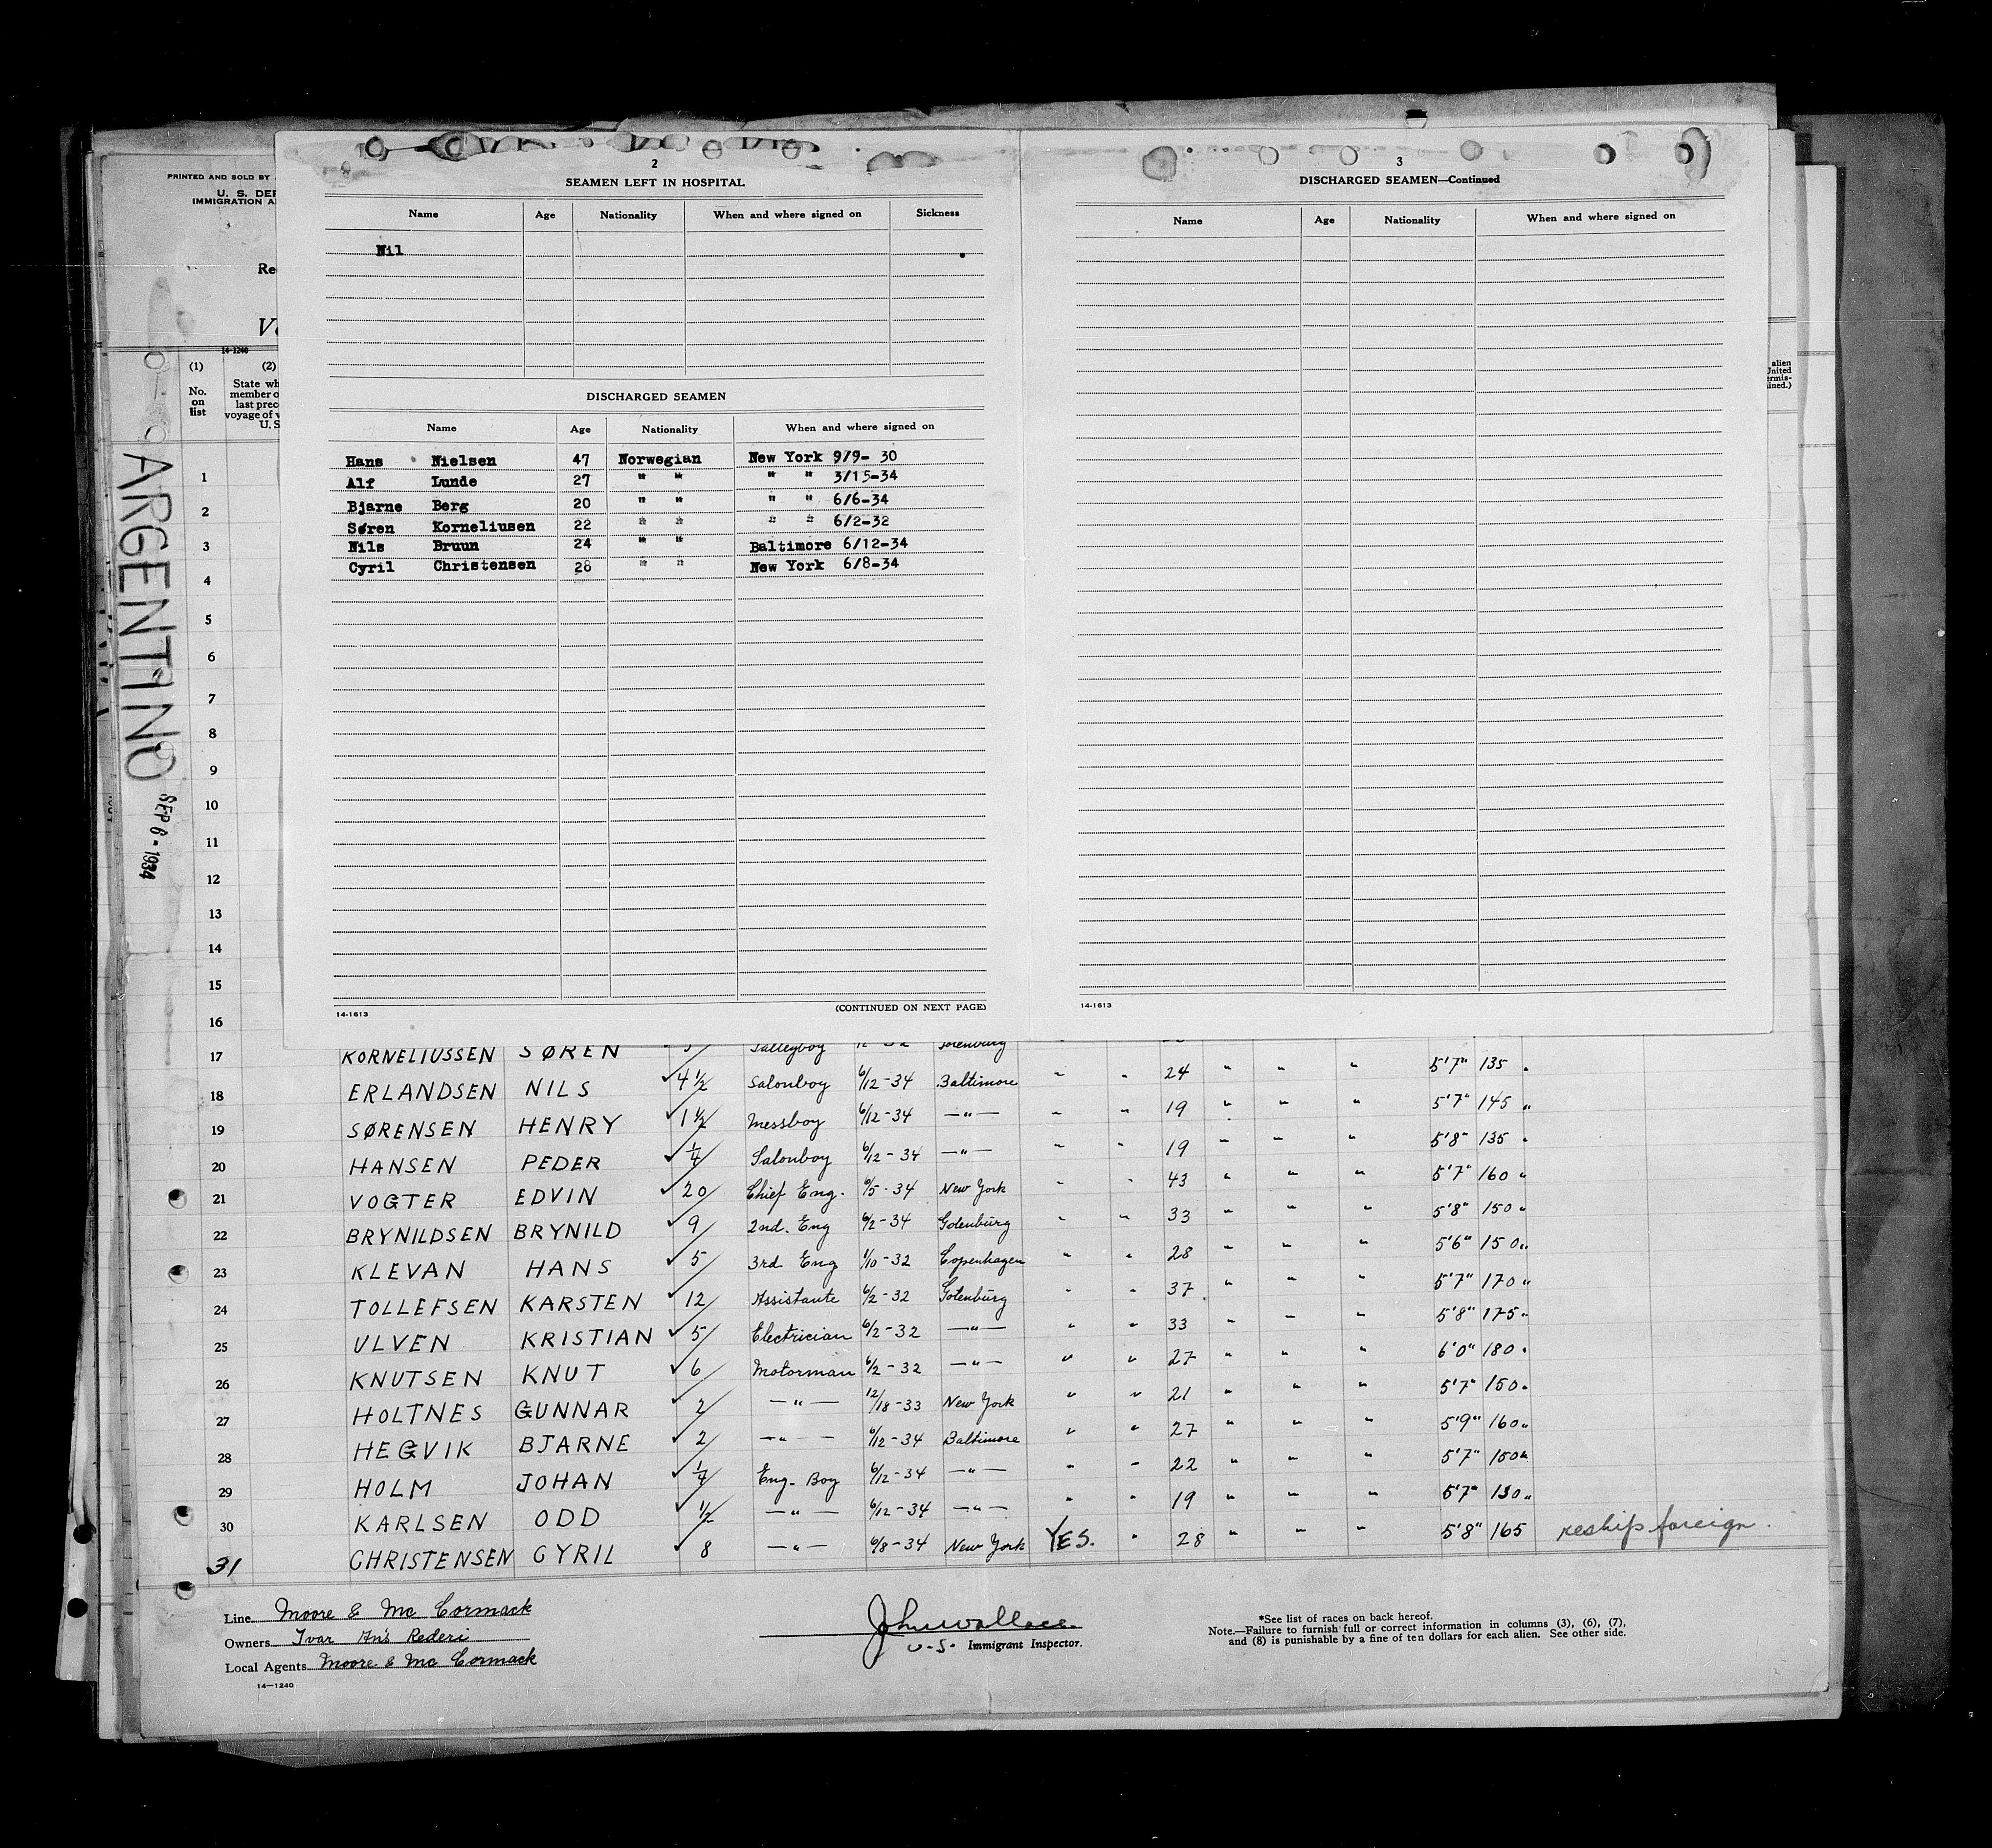 2
SEAMEN LEFT IN HOSPITAL
Name Age Nationality When and where signed on Sickness
Nil
DISCHARGED SEAMEN
Name Age Nationality When and where signed on
Hans Nielsen 47 Norwegian New York 9/9- 30
Alf Lunde 27 " " " " 3/15-34
Bjarne Berg 20 " " " " 6/6-34
Søren Korneliusen 22 " " " " 6/2-32
Nils Bruun 24 " " Baltimore 6/12-34
Cyril Christensen 28 " " New York 6/8-34
(CONTINUED ON NEXT PAGE)
14-1613
3
DISCHARGED SEAMEN—Continued
Name Age Nationality When and where signed on
14-1613
PRINTED AND SOLD BY
U. S. DEP
IMMIGRATION A
Re
14-1240
(1) (2)
No. on list
State wh
member o
last prec
voyage of v
U. S
alien
United
ermis-
ined.)
ARGENTINO
SEP 6 - 1934
1
2
3
4
5
6
7
8
9
10
11
12
13
14
15
16
17 KORNELIUSSEN SØREN Galleyboy Gotenburg
18 ERLANDSEN NILS ✓ 4½ Salonboy 6/12-34 Baltimore " " 24 " " " 5'7" 135 "
19 SØRENSEN HENRY ✓ 1½ Messboy 6/12-34 —"— " " 19 " " " 5'7" 145 "
20 HANSEN PEDER ✓ ¼ Salonboy 6/12-34 —"— " " 19 " " " 5'8" 135 "
21 VOGTER EDVIN ✓ 20 Chief Eng. 6/5-34 New York " " 43 " " " 5'7" 160 "
22 BRYNILDSEN BRYNILD ✓ 9 2nd. Eng 6/2-34 Gotenburg " " 33 " " " 5'8" 150 "
23 KLEVAN HANS ✓ 5 3rd Eng 1/10-32 Copenhagen " " 28 " " " 5'6" 150 "
24 TOLLEFSEN KARSTEN ✓ 12 Assistante 6/2-32 Gotenburg " " 37 " " " 5'7" 170 "
25 ULVEN KRISTIAN ✓ 5 Electrician 6/2-32 —"— " " 33 " " " 5'8" 175 "
26 KNUTSEN KNUT ✓ 6 Motorman 6/2-32 —"— " " 27 " " " 6'0" 180 "
27 HOLTNES GUNNAR ✓ 2 —"— 12/18-33 New York " " 21 " " " 5'7" 150 "
28 HEGVIK BJARNE ✓ 2 —"— 6/12-34 Baltimore " " 27 " " " 5'9" 160 "
29 HOLM JOHAN ✓ ¼ Eng. Boy 6/12-34 —"— " " 22 " 5'7" 150 "
30 KARLSEN ODD ✓ ½ —"— 6/12-34 —"— " " 19 " " " 5'7" 130 "
31 CHRISTENSEN CYRIL ✓ 8 —"— 6/8-34 New York YES. " 28 " " " 5'8" 165 reship foreign.
Line Moore & Mc Cormack
Owners Ivar An's Rederi
Local Agents Moore & Mc Cormack
14—1240
John Wallace
U.S. Immigrant Inspector.
*See list of races on back hereof.
Note.—Failure to furnish full or correct information in columns (3), (6), (7),
and (8) is punishable by a fine of ten dollars for each alien. See other side.